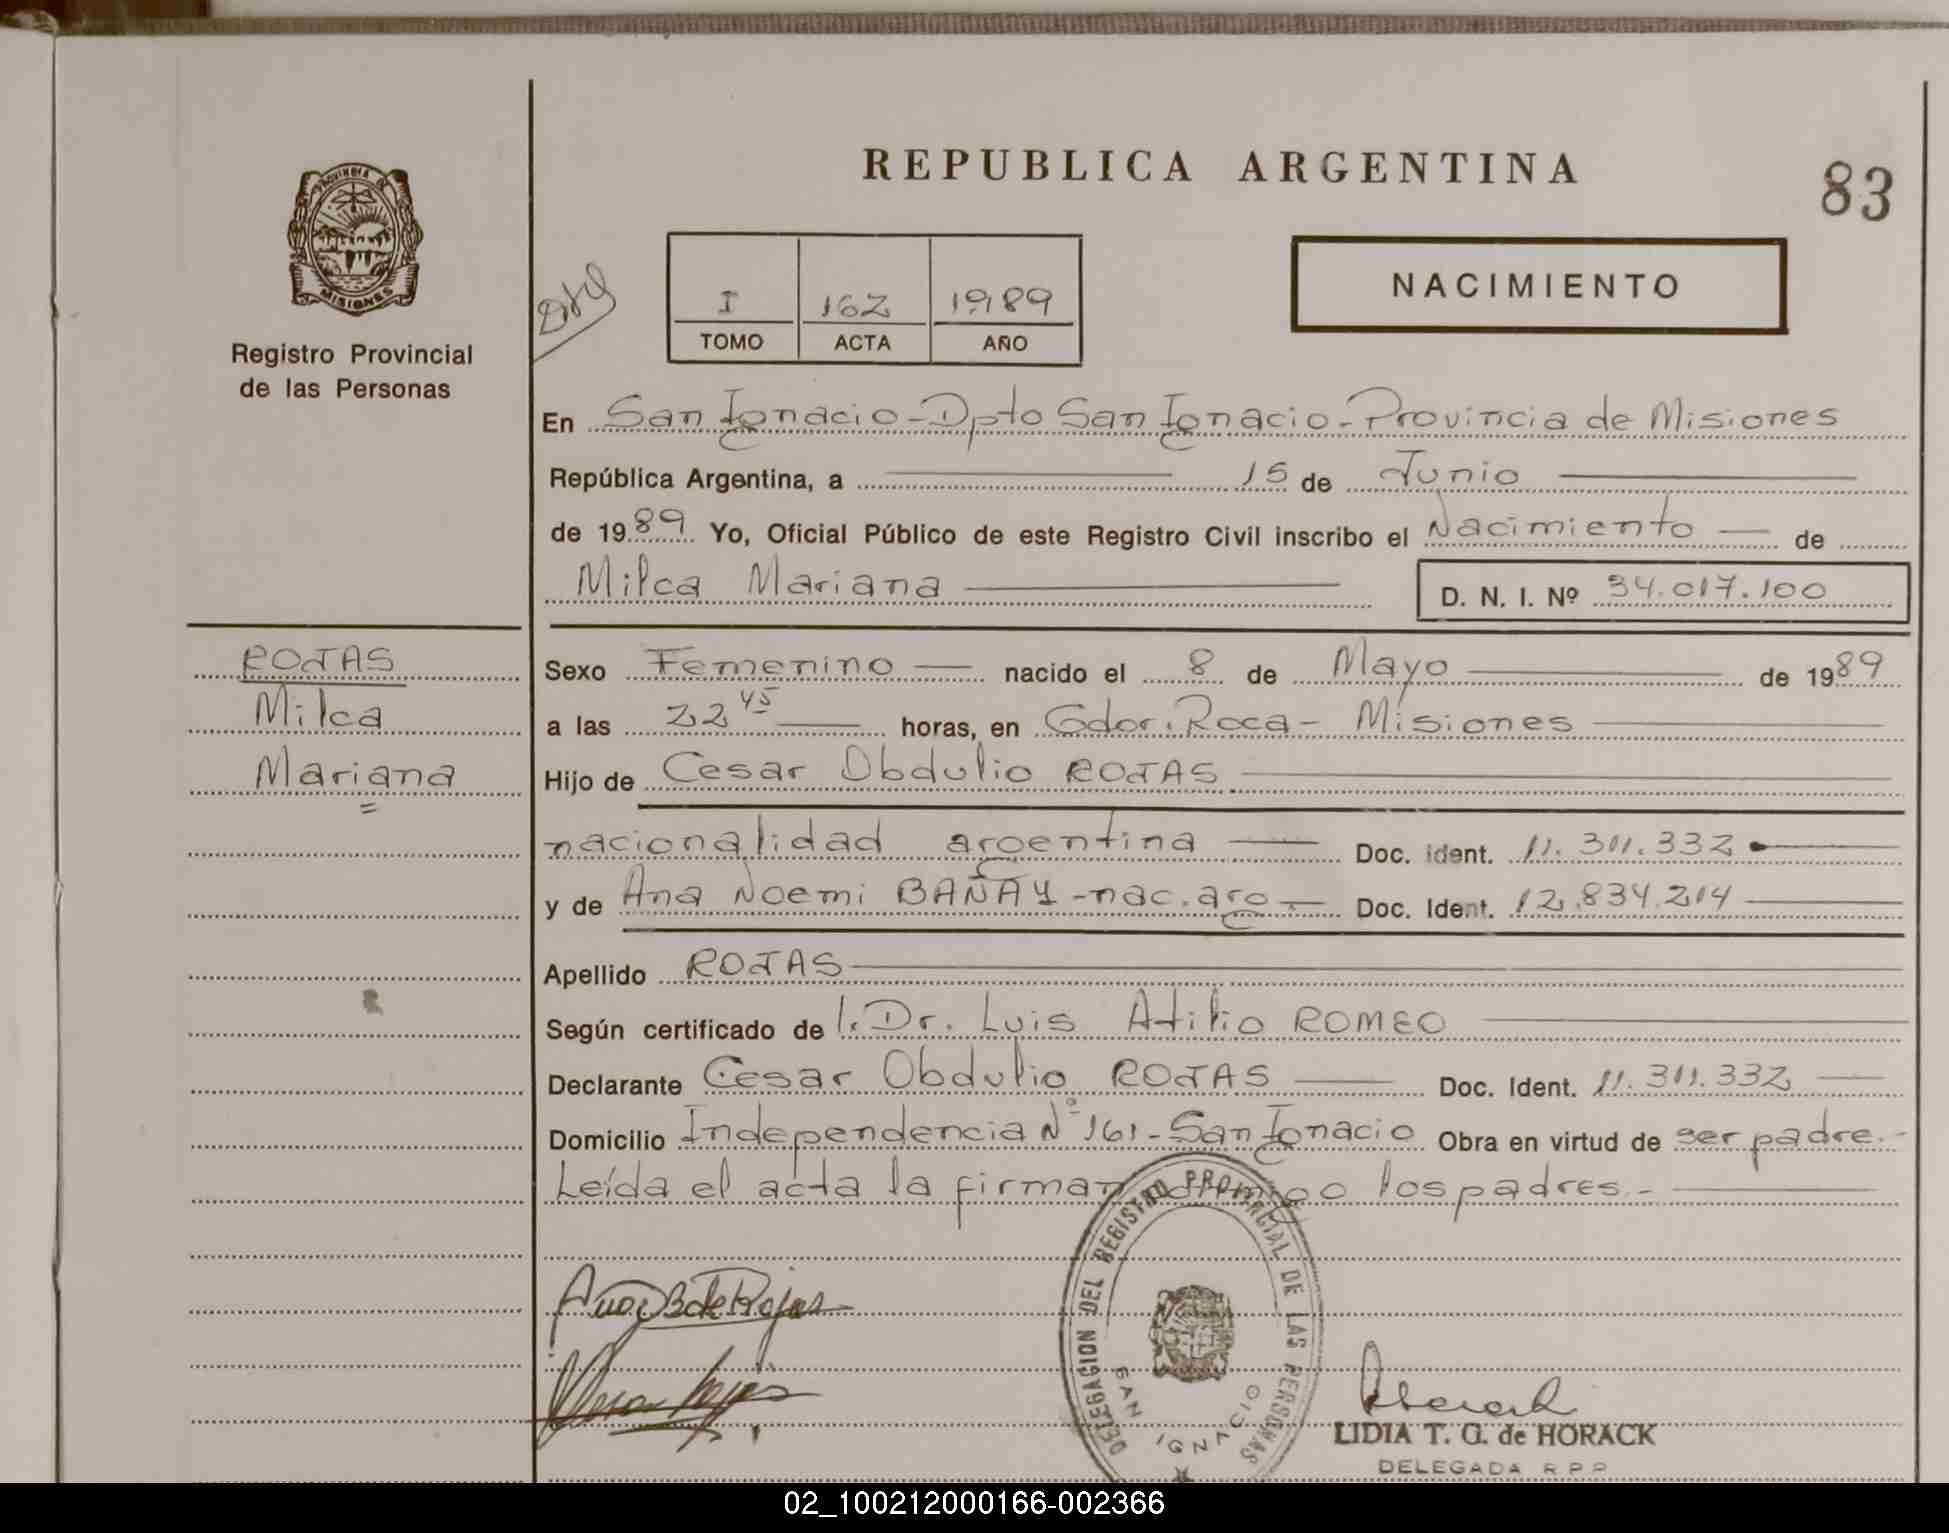 REPUBLICA ARGENTINA
83
PROVINCIA DE
MISIONES
Registro Provincial
de las Personas
I 162 1989
TOMO ACTA AÑO
NACIMIENTO
En San Ignacio - Dpto San Ignacio - Provincia de Misiones
República Argentina, a 15 de Junio
de 1989 Yo, Oficial Público de este Registro Civil inscribo el Nacimiento de
Milca Mariana
D. N. I. Nº 34.017.100
ROJAS
Milca
Mariana
Sexo Femenino nacido el 8 de Mayo de 1989
a las 22 45 horas, en Gdor. Roca - Misiones
Hijo de Cesar Obdulio ROJAS
nacionalidad argentina Doc. ident. 11.311.332
y de Ana Noemi BAÑAY - nac. arg. Doc. Ident. 12.834.214
Apellido ROJAS
Según certificado de l. Dr. Luis Atilio ROMEO
Declarante Cesar Obdulio ROJAS Doc. Ident. 11.311.332
Domicilio Independencia Nº 161 - San Ignacio Obra en virtud de ser padre.-
Leída el acta la firman conmigo los padres.-
DELEGACION DEL REGISTRO PROVINCIAL DE LAS PERSONAS
SAN IGNACIO
LIDIA T. G. de HORACK
DELEGADA R P P
02_100212000166-002366